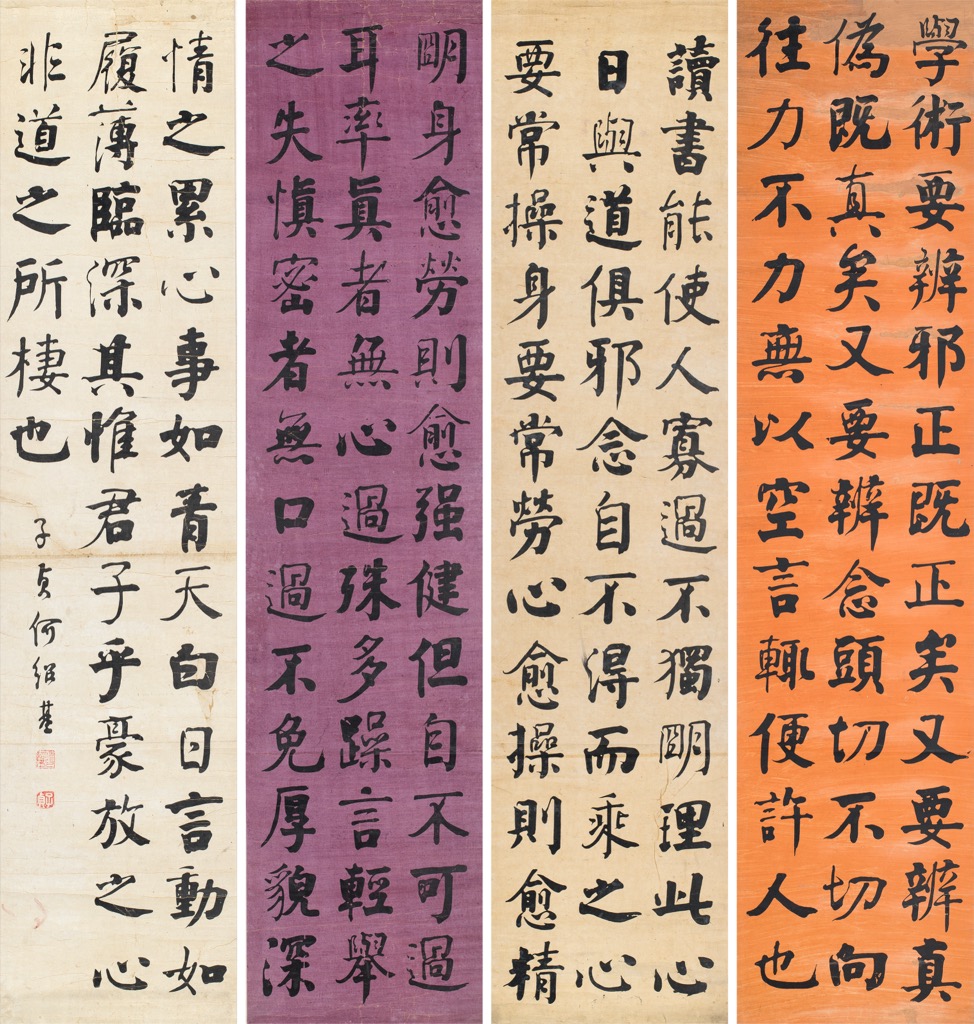 學術要辨邪正既正矣又要辨真
偽既真矣又要辨念頭切不切向
往力不力無以空言輒便許人也
讀書能使人寡過不獨明理此心
日與道俱邪念自不得而乘之心
要常操身要常勞心愈操則愈精
明身愈勞則愈強健但自不可過
耳率真者無心過殊多躁言輕舉
之失慎密者無口過不免厚貌深
情之累心事如青天白日言動如
履薄臨深其惟君子乎豪放之心
非道之所棲也
子貞何紹基